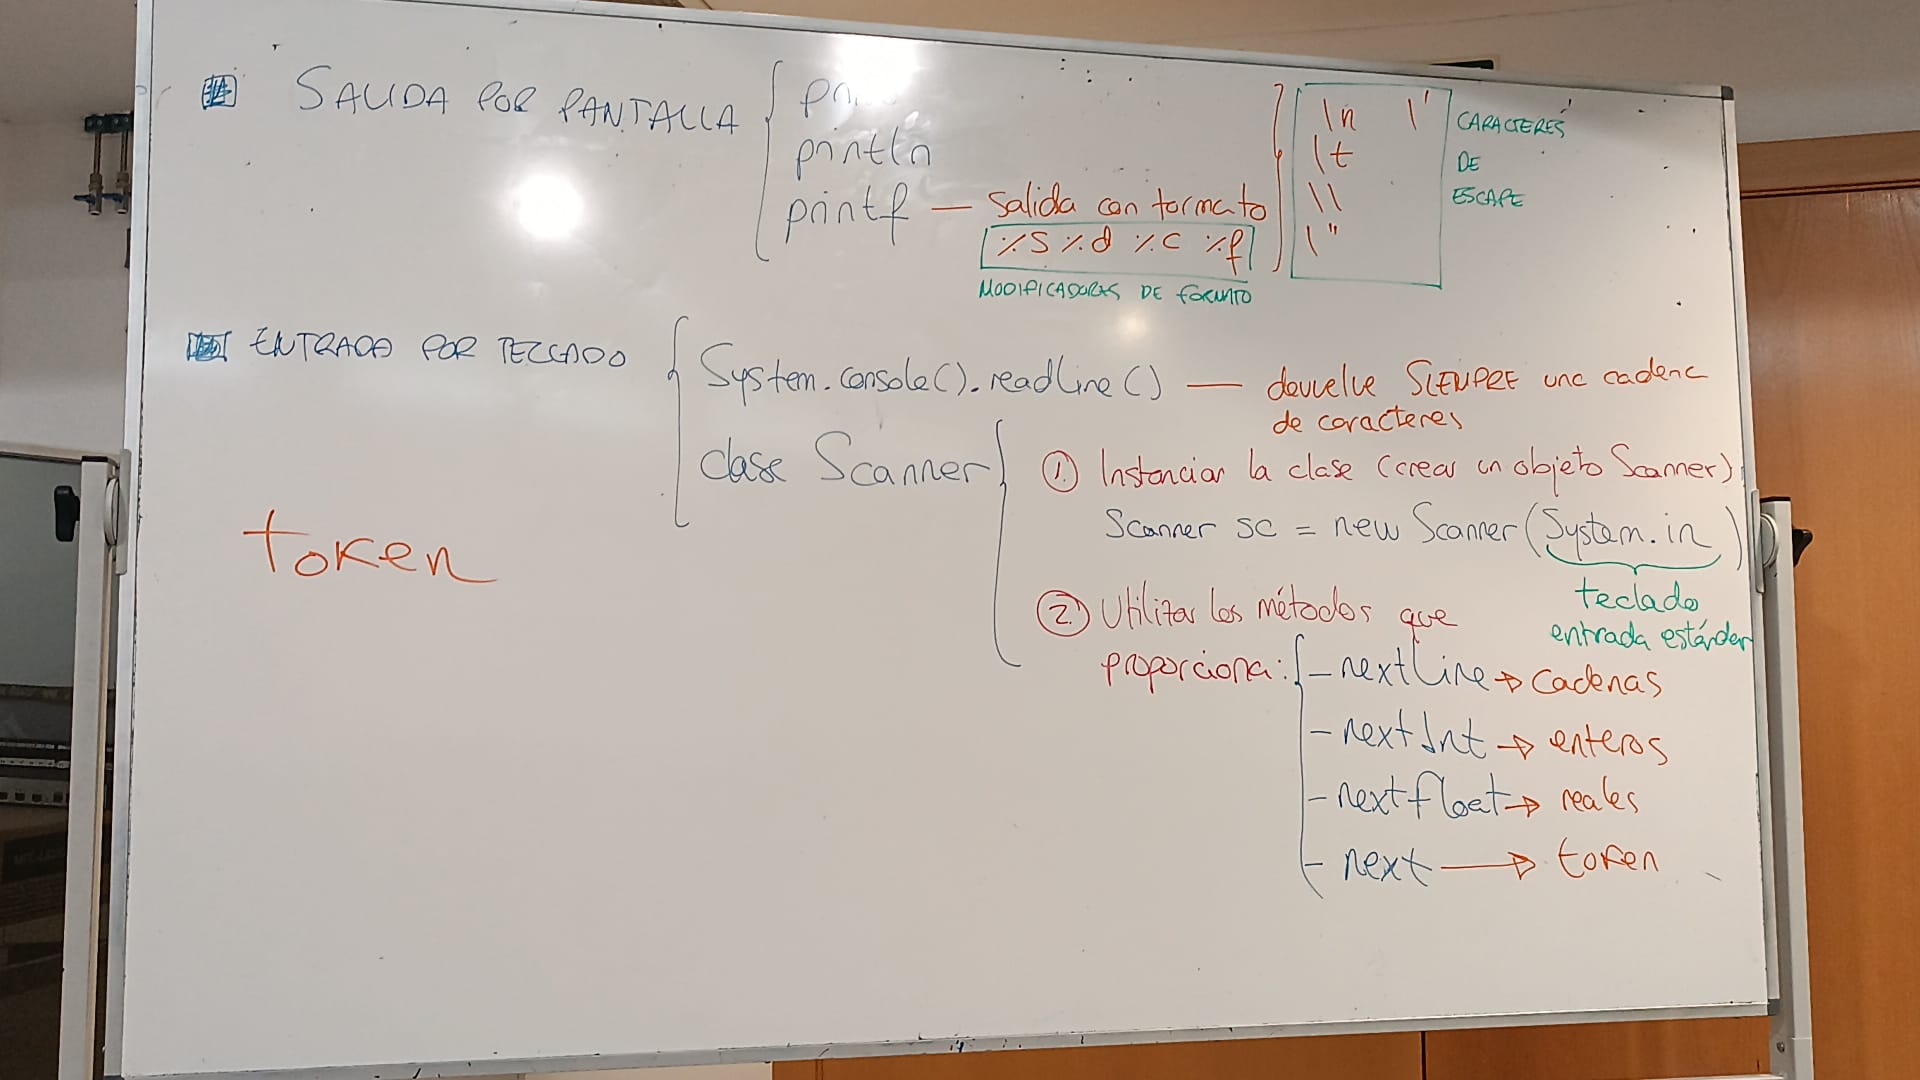 SALIDA POR PANTALLA
println
printf — salida con formato
%s %d %c %f
MODIFICADORES DE FORMATO
\n \'
\t
\\
\"
CARACTERES
DE
ESCAPE
ENTRADA POR TECLADO
System.console().readLine() — devuelve SIEMPRE una cadena
de caracteres
clase Scanner
1. Instanciar la clase (crear un objeto Scanner)
Scanner sc = new Scanner (System.in)
teclado
entrada estándar
2. Utilizar los métodos que
proporciona:
- nextLine → cadenas
- nextInt → enteros
- nextfloat → reales
- next → token
token